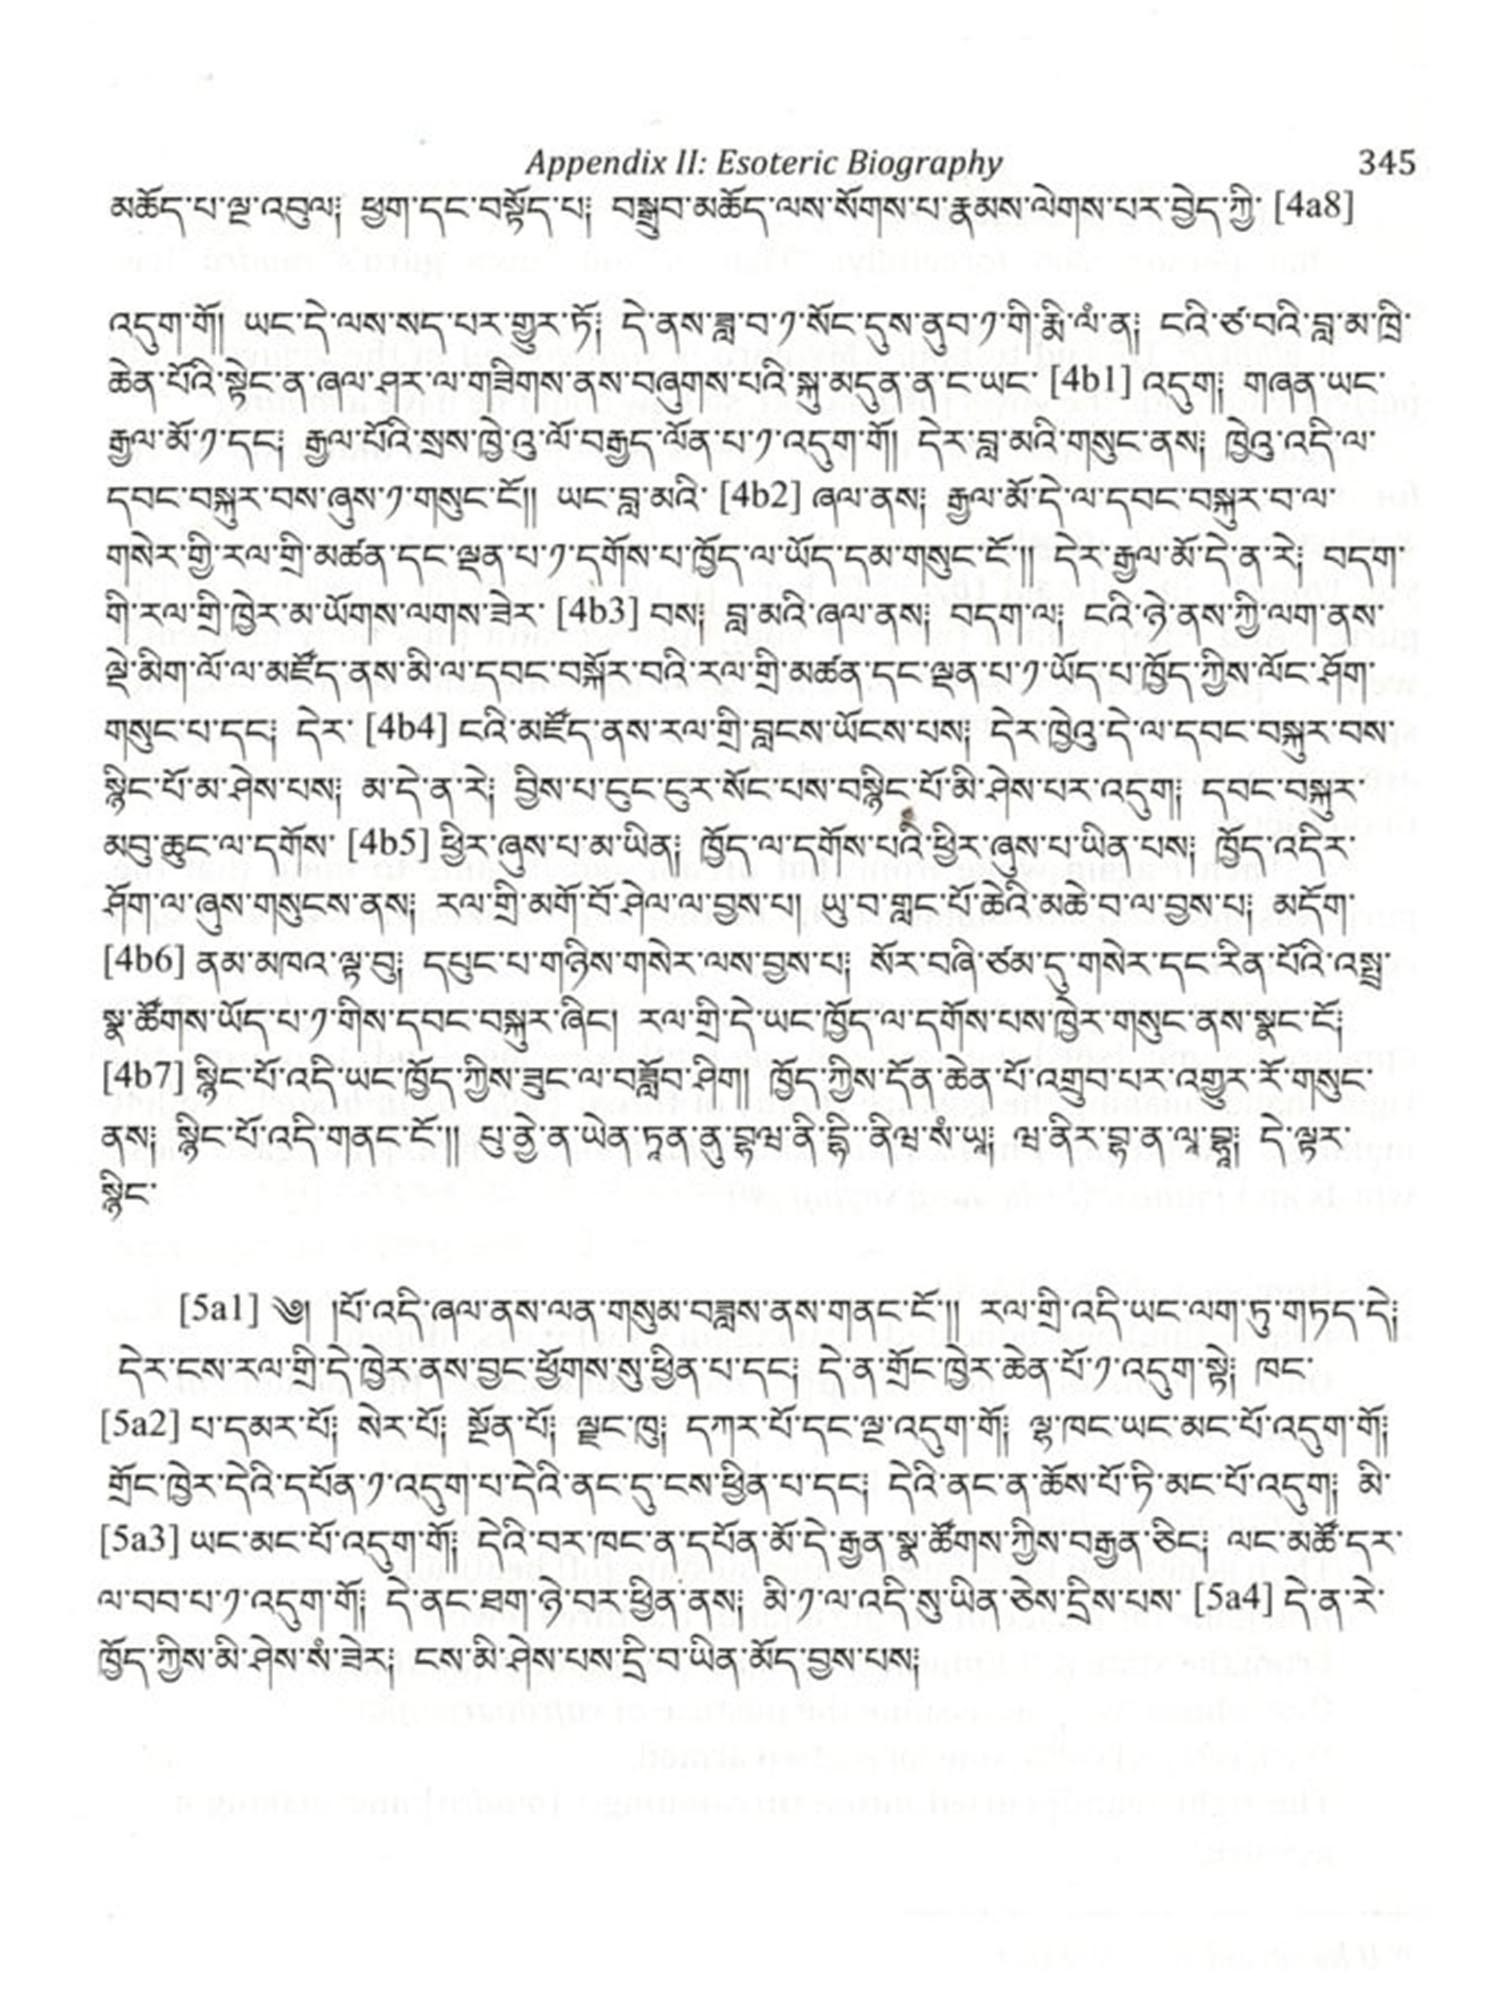 Appendix II: Esoteric Biography 345
མཆོད་པ་ལྔ་འབུལ༑ ཕྱག་དང་བསྟོད་པ༑ བསྒྲུབ་མཆོད་ལས་སོགས་པ་རྣམས་ལེགས་པར་བྱེད་ཀྱི་ [4a8]
འདུག་གོ། ཡང་དེ་ལས་སད་པར་གྱུར་ཏོ༑ དེ་ནས་ཟླ་བ་༡་སོང་དུས་ནུབ་༡་གི་རྨི་ལཾ་ན༑ ངའི་ཙ་བའི་བླ་མ་ཁྲི་
ཆེན་པོའི་སྟེང་ན་ཞལ་ཤར་ལ་གཟིགས་ནས་བཞུགས་པའི་སྐུ་མདུན་ན་ང་ཡང་ [4b1] འདུག༑ གཞན་ཡང་
རྒྱལ་མོ་༡་དང༑ རྒྱལ་པོའི་སྲས་ཁྱེ་འུ་ལོ་བརྒྱད་ལོན་པ་༡་འདུག་གོ། དེར་བླ་མའི་གསུང་ནས༑ ཁྱེའུ་འདི་ལ་
དབང་བསྐུར་བས་ཞུས་༡་གསུང་ངོ༎ ཡང་བླ་མའི་ [4b2] ཞལ་ནས༑ རྒྱལ་མོ་དེ་ལ་དབང་བསྐུར་བ་ལ་
གསེར་གྱི་རལ་གྲི་མཚན་དང་ལྡན་པ་༡་དགོས་པ་ཁྱོད་ལ་ཡོད་དམ་གསུང་ངོ༌༎ དེར་རྒྱལ་མོ་དེ་ན་རེ༑ བདག་
གི་རལ་གྲི་ཁྱེར་མ་ཡོགས་ལགས་ཟེར་ [4b3] བས༑ བླ་མའི་ཞལ་ནས༑ བདག་ལ༑ ངའི་ཉེ་ནས་ཀྱི་ལག་ནས་
ལྡེ་མིག་ལོ་ལ་མཛོད་ནས་མི་ལ་དབང་བསྐོར་བའི་རལ་གྲི་མཚན་དང་ལྡན་པ་༡་ཡོད་པ་ཁྱོད་ཀྱིས་ལོང་ཤོག་
གསུང་པ་དང༑ དེར་ [4b4] ངའི་མཛོད་ནས་རལ་གྲི་བླངས་ཡོངས་པས༑ དེར་ཁྱེའུ་དེ་ལ་དབང་བསྐུར་བས་
སྙིང་པོ་མ་ཤེས་པས༑ མ་དེ་ན་རེ༑ བྱིས་པ་ངུང་ངུར་སོང་པས་བསྙིང་པོ་མི་ཤེས་པར་འདུག༑ དབང་བསྐུར་
མབུ་ཆུང་ལ་དགོས་ [4b5] ཕྱིར་ཞུས་པ་མ་ཡིན༑ ཁྱོད་ལ་དགོས་པའི་ཕྱིར་ཞུས་པ་ཡིན་པས༑ ཁྱོད་འདིར་
ཤོག་ལ་ཞུས་གསུངས་ནས༑ རལ་གྲི་མགོ་བོ་ཤེལ་ལ་བྱས་པ། ཡུ་བ་གླང་པོ་ཆེའི་མཆེ་བ་ལ་བྱས་པ༑ མདོག་
[4b6] ནམ་མཁའ་ལྟ་བུ༑ དཔུང་པ་གཉིས་གསེར་ལས་བྱས་པ༑ སོར་བཞི་ཙམ་དུ་གསེར་དང་རིན་པོའི་འསྤྲ་
སྣ་ཚོགས་ཡོད་པ་༡་གིས་དབང་བསྐུར་ཞིང། རལ་གྲི་དེ་ཡང་ཁྱོད་ལ་དགོས་པས་ཁྱེར་གསུང་ནས་སྣང་ངོ༑
[4b7] སྙིང་པོ་འདི་ཡང་ཁྱོད་ཀྱིས་ཟུང་ལ་བཟློབ་ཤིག། ཁྱོད་ཀྱིས་དོན་ཆེན་པོ་འགྲུབ་པར་འགྱུར་རོ་གསུང་
ནས༑ སྙིང་པོ་འདི་གནང་ངོ༌༎ དེ་ལྟར་
སྙིང་
[5a1] ༄། །པོ་འདི་ཞལ་ནས་ལན་གསུམ་བཟླས་ནས་གནང་ངོ༌༎ རལ་གྲི་འདི་ཡང་ལག་ཏུ་གཏད་དེ༑
དེར་ངས་རལ་གྲི་དེ་ཁྱེར་ནས་བྱང་ཕྱོགས་སུ་ཕྱིན་པ་དང༑ དེ་ན་གྲོང་ཁྱེར་ཆེན་པོ་༡་འདུག་སྟེ༑ ཁང་
[5a2] པ་དམར་པོ༑ སེར་པོ༑ སྔོན་པོ༑ ལྗང་ཁུ༑ དཀར་པོ་དང་ལྔ་འདུག་གོ༑ ལྷ་ཁང་ཡང་མང་པོ་འདུག་གོ༑
གྲོང་ཁྱེར་དེའི་དཔོན་༡་འདུག་པ་དེའི་ནང་དུ་ངས་ཕྱིན་པ་དང༑ དེའི་ནང་ན་ཆོས་པོ་ཏི་མང་པོ་འདུག༑ མི་
[5a3] ཡང་མང་པོ་འདུག་གོ༑ དེའི་བར་ཁང་ན་དཔོན་མོ་དེ་རྒྱན་སྣ་ཚོགས་ཀྱིས་བརྒྱན་ཅིང༑ ལང་མཚོ་དར་
ལ་བབ་པ་༡་འདུག་གོ༑ དེ་ནང་ཐག་ཉེ་བར་ཕྱིན་ནས༑ མི་༡་ལ་འདི་སུ་ཡིན་ཅེས་དྲིས་པས་ [5a4] དེ་ན་རེ་
ཁྱོད་ཀྱིས་མི་ཤེས་སཾ་ཟེར༑ ངས་མི་ཤེས་པས་དྲི་བ་ཡིན་མོད་བྱས་པས༑